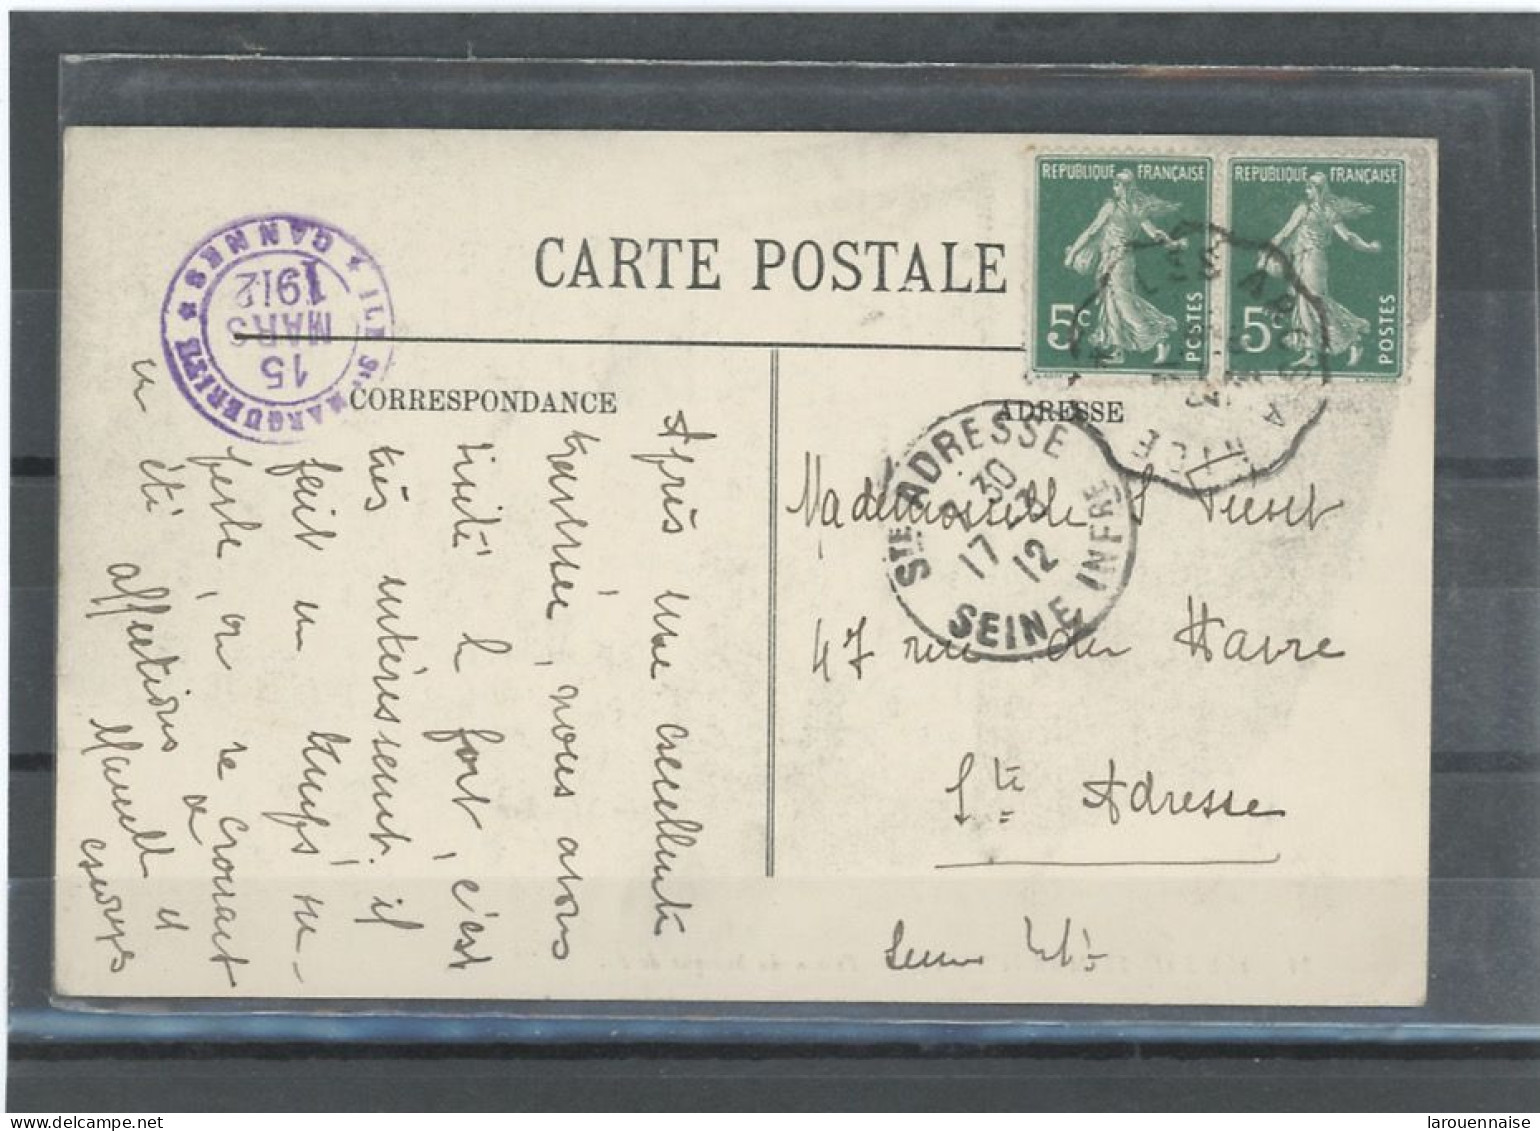 CARTE POSTALE
CORRESPONDANCE
ADRESSE
REPUBLIQUE FRANÇAISE
5c
POSTES
REPUBLIQUE FRANÇAISE
5c
POSTES
ILE Ste MARGUERITE
★ CANNES ★
15
MARS
1912
LES ARCS A NICE
STE ADRESSE
30
17 - 3
12
SEINE INFRE
Après une excellente
traversée, nous avons
visité le fort, c'est
très intéressant. il
fait un temps su-
perbe, on se croirait
en été
affections de
Maud et
Georges
Mademoiselle
47 rue du Havre
Ste Adresse
Seine Infre
larouennaise